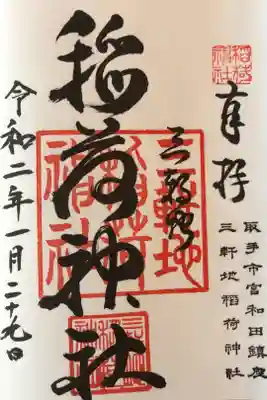 稲荷神社
奉拝
取手市宮和田鎮座
三軒地稲荷神社
三軒地
稲荷神社
令和二年一月二十九日
三軒地稲荷神社